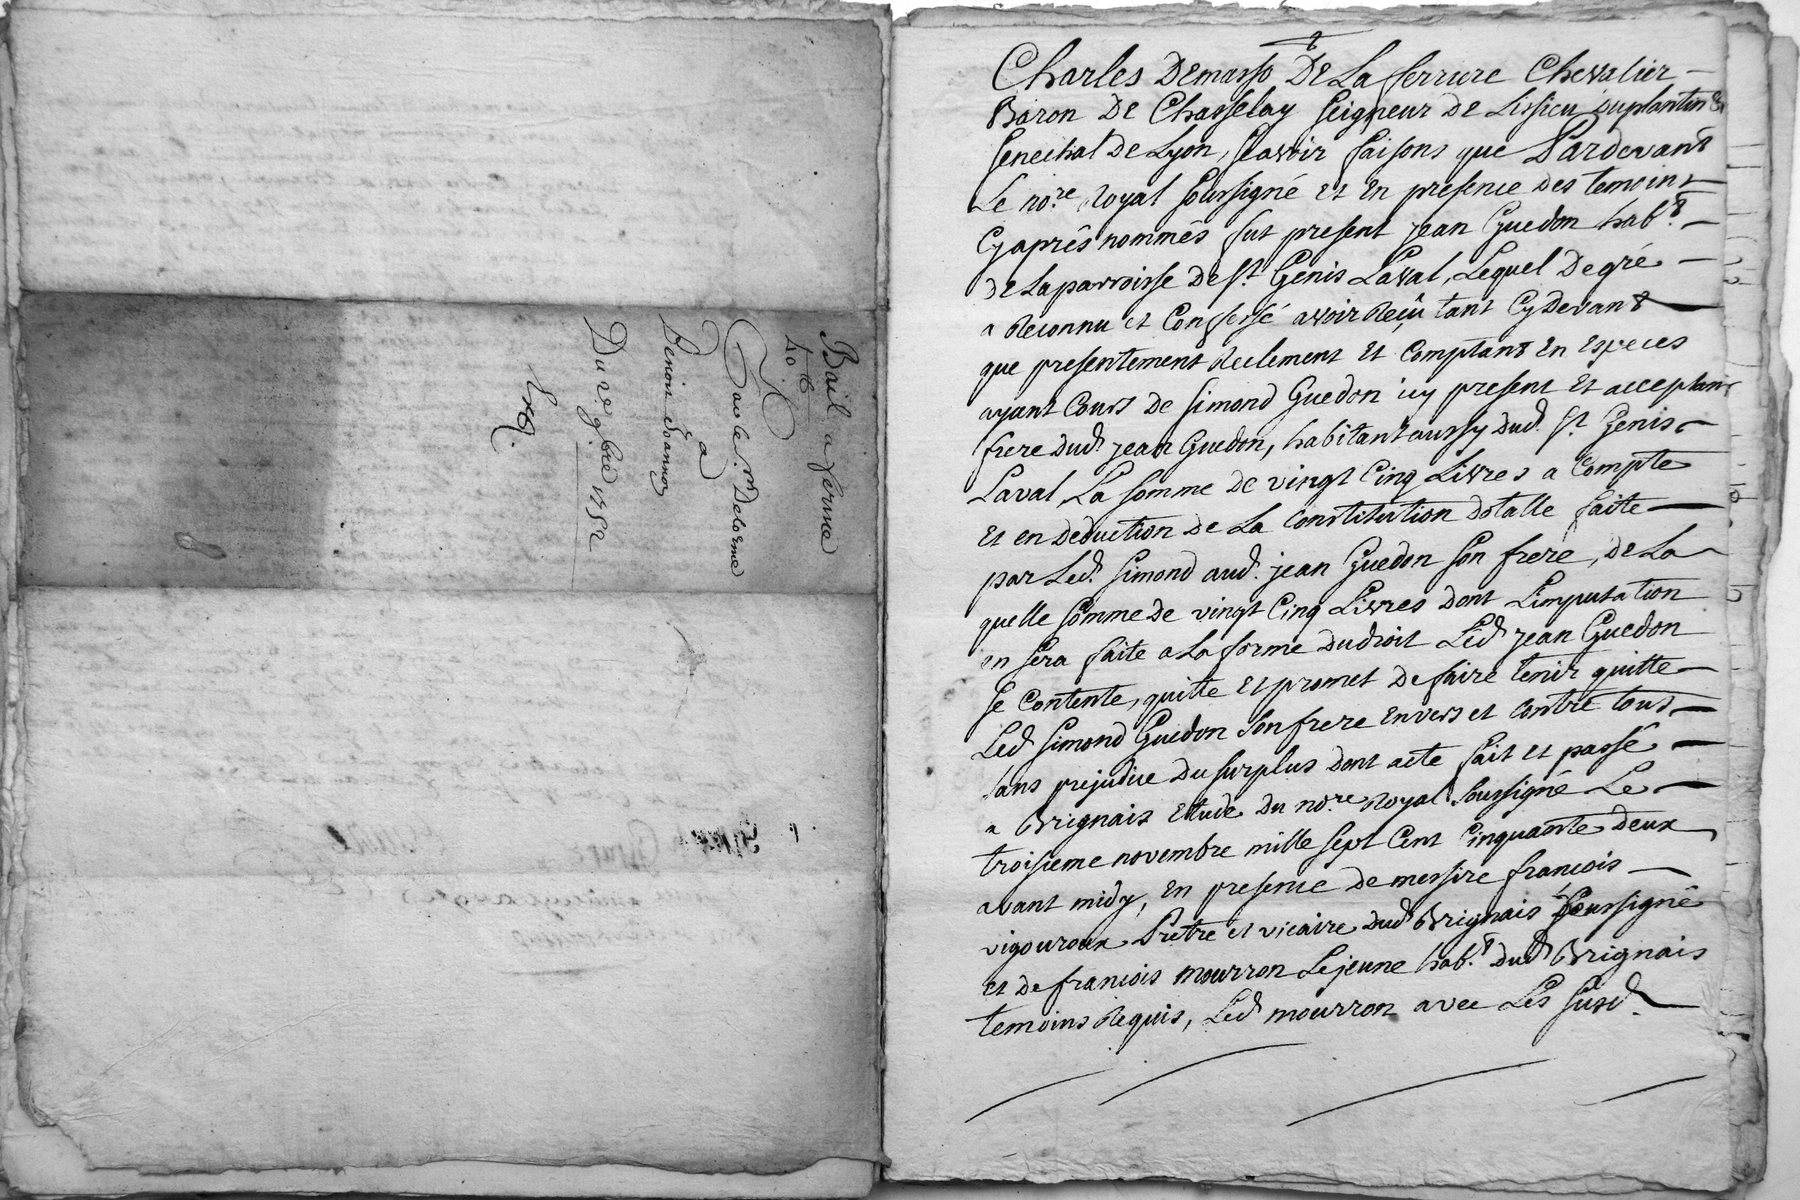 Bail a ferme
40
Paul le Sr. Delorme
a
Benoit Joannon
Du 29 9bre 1752
Exp.
Charles Demasso De La ferriere Chevalier
Baron De Chasselay Seigneur de Lissieu Duplantin &
Senechal De Lyon, Scavoir faisons que Pardevant
Le no.re Royal Soussigné et En presence des temoins
Cy aprés nommés fut present jean Guedon hab.t
de La parroisse De St. Genis Laval, Lequel De gré
a Reconnu et Confessé avoir Reçû tant Cy Devant
que presentement Reelement Et Comptant En Especes
ayant Cours De Simond Guedon icy present Et acceptant
frere dud. jean Guedon, habitant aussy Dud. St. Genis
Laval, La Somme De vingt Cinq Livres a Compte
Et en Deduction De La Constitution Dotalle faite
par Led. Simond aud. jean Guedon Son frere, De La
quelle Somme De vingt Cinq Livres Dont L'imputation
en Sera faite a La forme Du droit Led. jean Guedon
Se Contente, quitte Et promet De faire tenir quitte
Led. Simond Guedon Son frere Envers et Contre tous
Sans prejudice Du Surplus Dont acte fait Et passé
a Brignais Etude Du no.re Royal Soussigné Le
troisieme novembre mille Sept Cent Cinquante Deux
avant midy, En presence De messire francois
vigouroux Pretre et vicaire Dud. Brignais Soussigné
et De francois mourron Lejeune hab.t Dud. Brignais
temoins Requis, Led. mourron avec Les Susd.